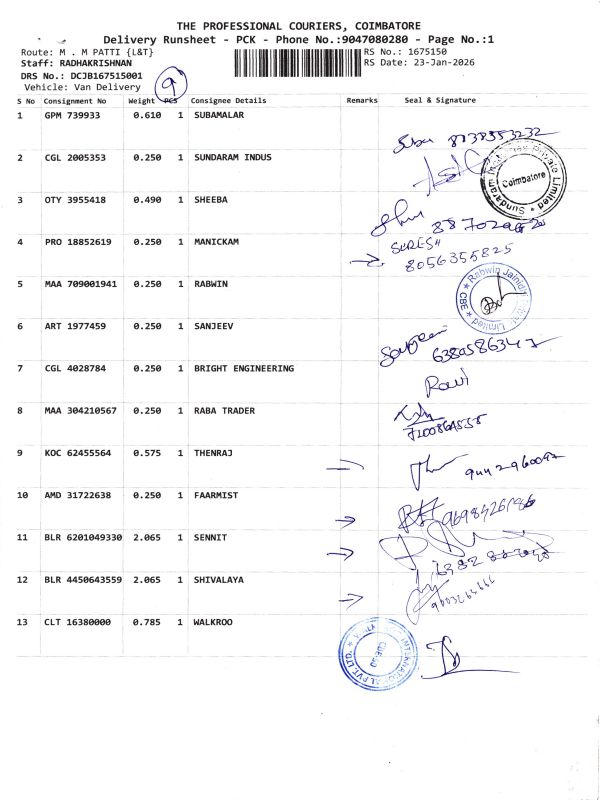 THE PROFESSIONAL COURIERS, COIMBATORE
Delivery Runsheet - PCK - Phone No.:9047080280 - Page No.:1
Route: M . M PATTI {L&T} RS No.: 1675150
Staff: RADHAKRISHNAN RS Date: 23-Jan-2026
DRS No.: DCJB167515001
Vehicle: Van Delivery
9
S No Consignment No Weight PCS Consignee Details Remarks Seal & Signature
1 GPM 739933 0.610 1 SUBAMALAR
8738553232
2 CGL 2005353 0.250 1 SUNDARAM INDUS
Coimbatore
3 OTY 3955418 0.490 1 SHEEBA
4 PRO 18852619 0.250 1 MANICKAM
SURESH
8056355825
5 MAA 709001941 0.250 1 RABWIN
CBE
6 ART 1977459 0.250 1 SANJEEV
7 CGL 4028784 0.250 1 BRIGHT ENGINEERING
Ravi
8 MAA 304210567 0.250 1 RABA TRADER
9 KOC 62455564 0.575 1 THENRAJ
10 AMD 31722638 0.250 1 FAARMIST
11 BLR 6201049330 2.065 1 SENNIT
12 BLR 4450643559 2.065 1 SHIVALAYA
13 CLT 16380000 0.785 1 WALKROO